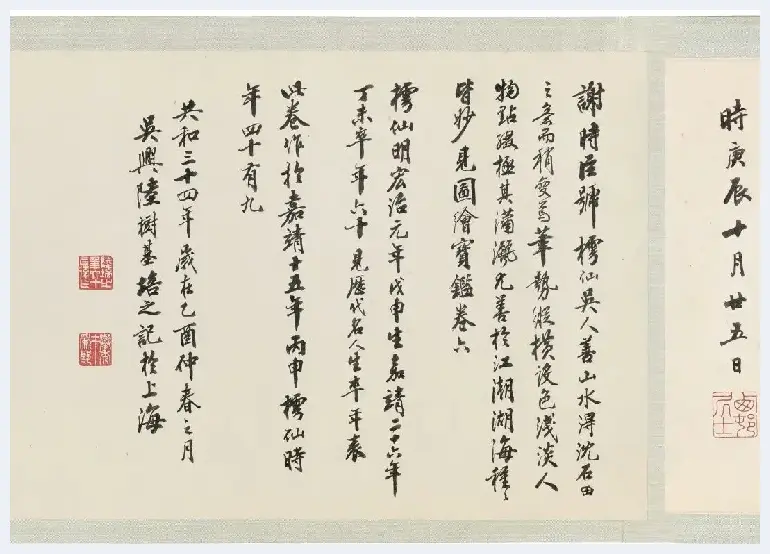 時庚辰十月廿五日
謝時臣號樗仙吳人善山水得沈石田
之意而稍變焉筆勢縱橫設色淺淡人
物點綴極其瀟灑尤善於江湖湖海種〻
皆妙見圖繪寶鑑卷六
樗仙明宏治元年戊申生嘉靖二十六年
丁未卒年六十見歷代名人生卒年表
此卷作於嘉靖十五年丙申樗仙時
年四十有九
共和三十四年歲在乙酉仲春之月
吳興陸樹基培之記於上海